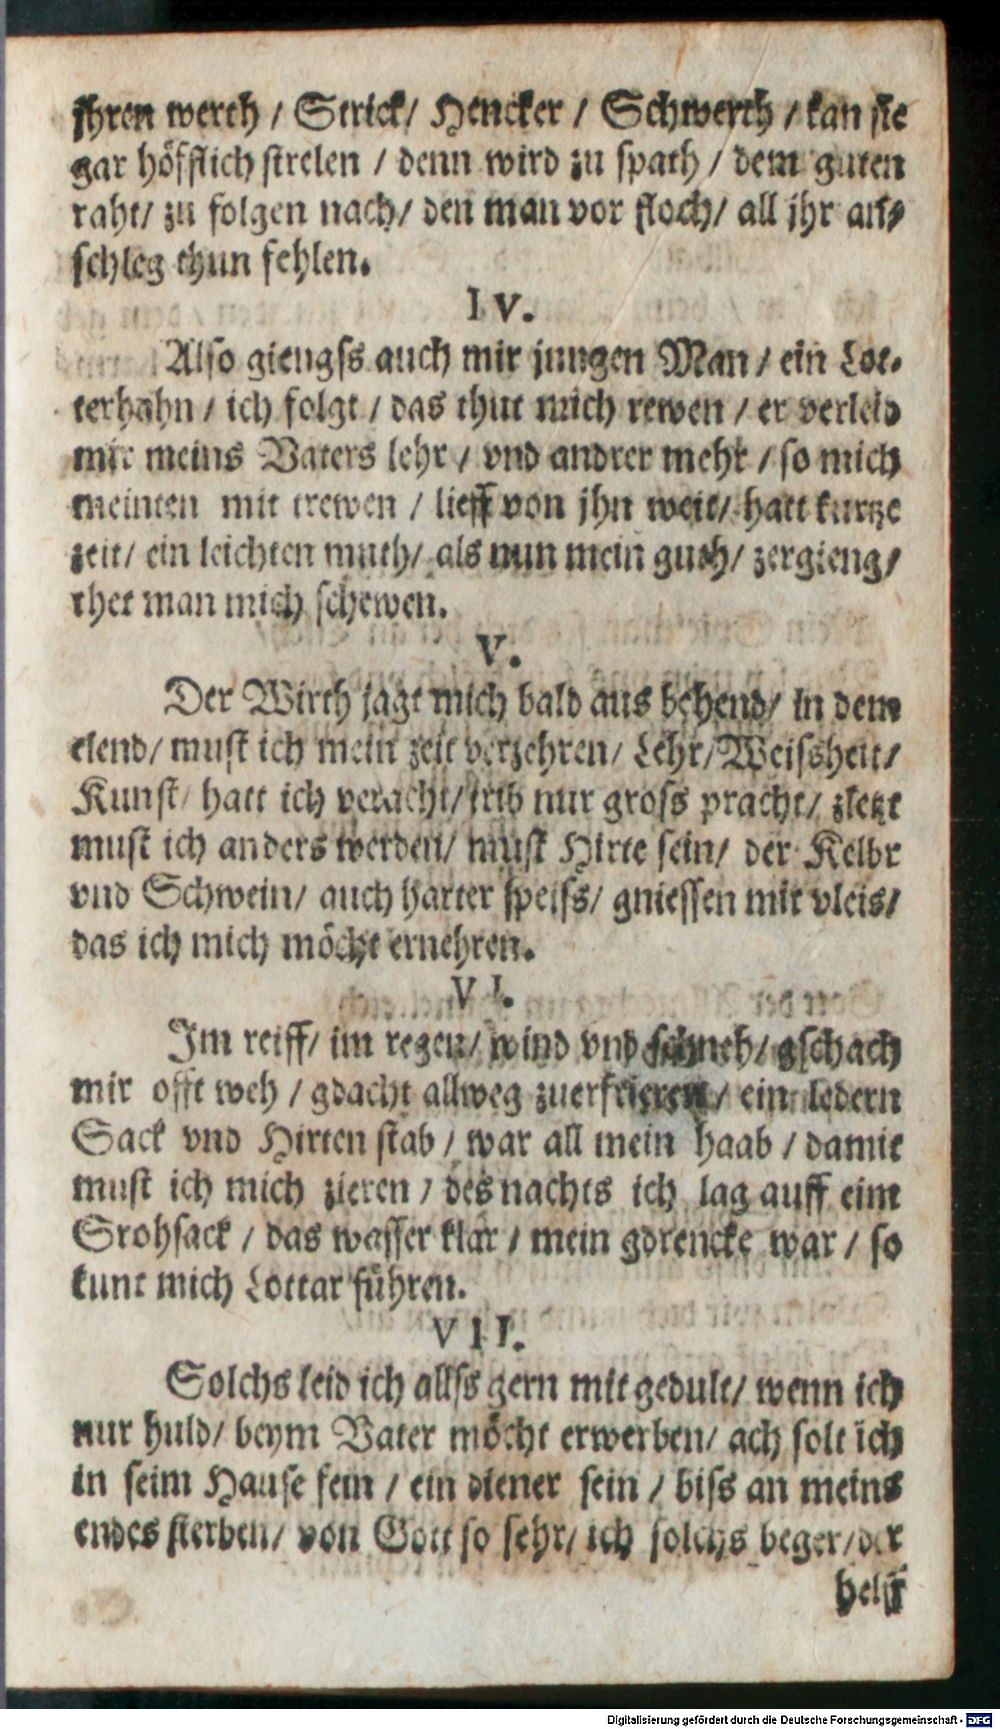 jhren werth / Strick / Hencker / Schwerth / kan sie
gar höfflich strelen / denn wird zu spath / dem guten
raht / zu folgen nach / den man vor floch / all jhr an-
schleg thun fehlen.
IV.
Also giengss auch mir jungen Man / ein Lot-
terhahn / ich folgt / das thut mich rewen / er verleid
mir meins Vaters lehr / vnd andrer mehr / so mich
meinten mit trewen / lieff von jhn weit / hatt kurtze
zeit / ein leichten muth / als nun mein guth / zergieng /
thet man mich schewen.
V.
Der Wirth jagt mich bald aus behend / in dem
elend / must ich mein zeit verzehren / Lehr / Weissheit /
Kunst / hatt ich veracht / trib nur gross pracht / zletzt
must ich anders werden / must Hirte sein / der Kelbr
vnd Schwein / auch harter speiss / gniessen mit vleis /
das ich mich möcht ernehren.
VI.
Im reiff / im regen / wind vnd schneh / gschach
mir offt weh / gdacht allweg zuerfrieren / ein ledern
Sack vnd Hirten stab / war all mein haab / damit
must ich mich zieren / des nachts ich lag auff eim
Srohsack / das wasser klar / mein gdrencke war / so
kunt mich Lottar führen.
VII.
Solchs leid ich allss gern mit gedult / wenn ich
nur huld / beym Vater möcht erwerben / ach solt ich
in seim Hause fein / ein diener sein / biss an meins
endes sterben / von Gott so sehr / ich solchs beger / der
helff
Digitalisierung gefördert durch die Deutsche Forschungsgemeinschaft - DFG